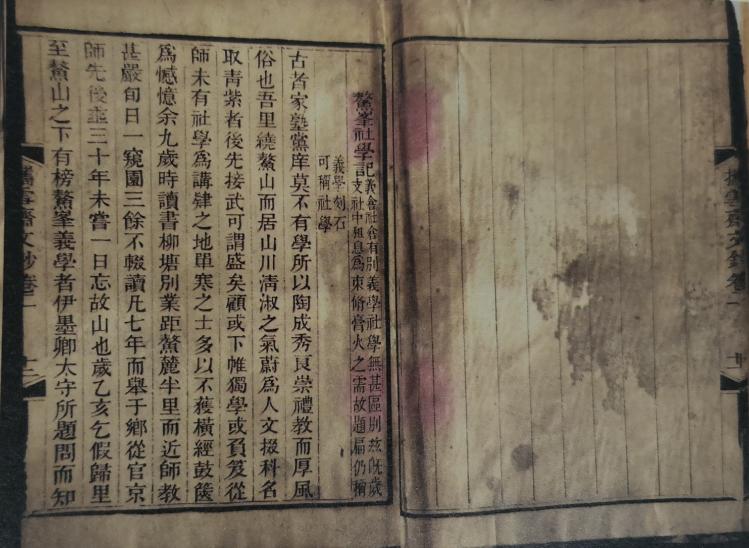 鰲峯社學記
義會社會有別義學社學無甚區別玆旣歲
支社中租息爲束脩膏火之需故題扁仍稱
義學刻石
可稱社學
古者家塾黨庠莫不有學所以陶成秀良崇禮教而厚風
俗也吾里繞鰲山而居山川清淑之氣蔚爲人文掇科名
取青紫者後先接武可謂盛矣顧或下帷獨學或負笈從
師未有社學爲講肄之地單寒之士多以不獲橫經鼓篋
爲憾憶余九歲時讀書柳塘別業距鰲麓半里而近師教
甚嚴旬日一窺園三餘不輟讀凡七年而舉于鄉從官京
師先後並三十年未嘗一日忘故山也歲乙亥乞假歸里
至鰲山之下有榜鰲峯義學者伊墨卿太守所題問而知
齋文鈔卷二
十二